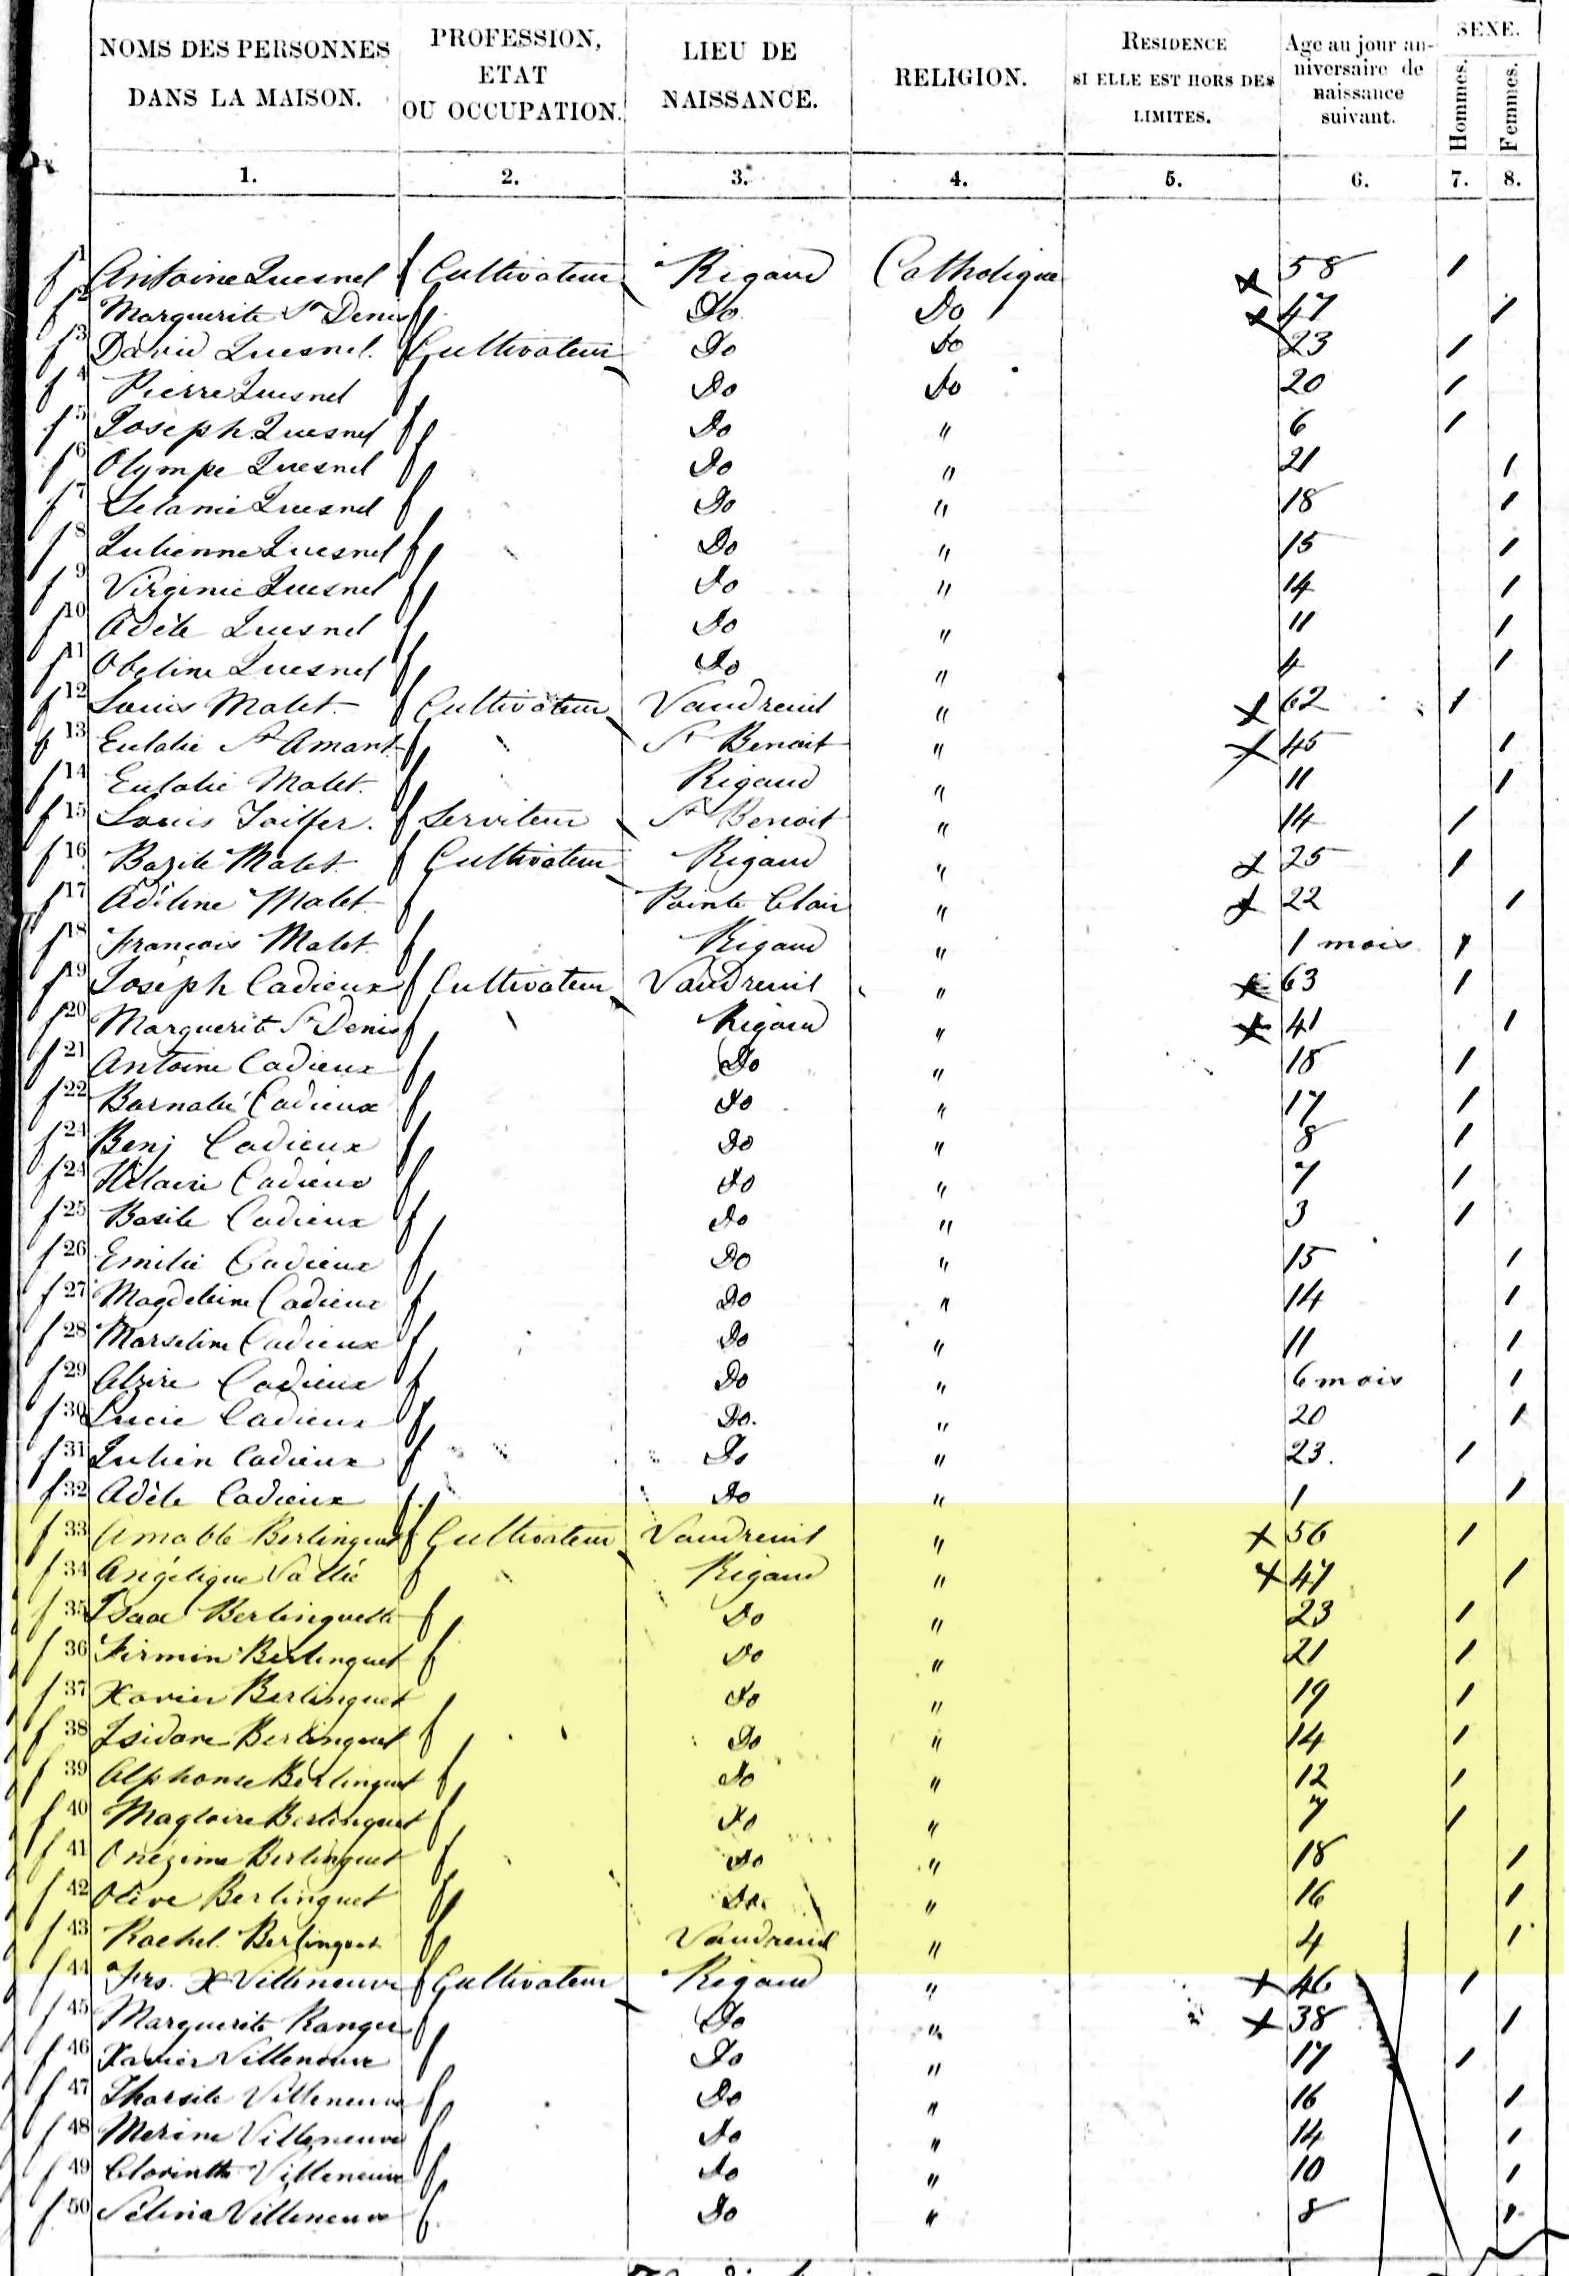 NOMS DES PERSONNES DANS LA MAISON.
PROFESSION, ETAT OU OCCUPATION.
LIEU DE NAISSANCE.
RELIGION.
RESIDENCE SI ELLE EST HORS DES LIMITES.
Age au jour anniversaire de naissance suivant.
SEXE.
Hommes.
Femmes.
1. 2. 3. 4. 5. 6. 7. 8.
1 Antoine Quesnel Cultivateur Rigaud Catholique x 58 1
2 Marguerite St Denis Do Do x 47 1
3 David Quesnel. Cultivateur Do Do 23 1
4 Pierre Quesnel Do Do 20 1
5 Joseph Quesnel Do " 6 1
6 Olympe Quesnel Do " 21 1
7 Selanie Quesnel Do " 18 1
8 Julienne Quesnel Do " 15 1
9 Virginie Quesnel Do " 14 1
10 Adèle Quesnel Do " 11 1
11 Obeline Quesnel Do " 4 1
12 Louis Malet. Cultivateur Vaudreuil " x 62 1
13 Eulalie St Amant St Benoit " x 45 1
14 Eulalie Malet. Rigaud " 11 1
15 Louis Serviteur St Benoit " 14 1
16 Bazile Malet. Cultivateur Rigaud " x 25 1
17 Adéline Malet Pointe Clair " x 22 1
18 François Malet Rigaud " 1 mois 1
19 Joseph Cadieux Cultivateur Vaudreuil " x 63 1
20 Marguerite St Denis Rigaud " x 41 1
21 Antoine Cadieux Do " 18 1
22 Barnabé Cadieux Do " 17 1
24 Benj Cadieux Do " 8 1
24 Hilaire Cadieux Do " 7 1
25 Basile Cadieux Do " 3 1
26 Emilie Cadieux Do " 15 1
27 Magdeleine Cadieux Do " 14 1
28 Marseline Cadieux Do " 11 1
29 Alzire Cadieux Do " 6 mois 1
30 Lucie Cadieux Do. " 20 1
31 Julien Cadieux Do " 23. 1
32 Adèle Cadieux Do " 1 1
33 Amable Berlinguet Cultivateur Vaudreuil " x 56 1
34 Angélique Vallée Rigaud " x 47 1
35 Isaac Berlinguette Do " 23 1
36 Firmin Berlinguet Do " 21 1
37 Xavier Berlinguet Do " 19 1
38 Isidore Berlinguet Do " 14 1
39 Alphonse Berlinguet Do " 12 1
40 Magloire Berlinguet Do " 7 1
41 Onézime Berlinguet Do " 18 1
42 Olive Berlinguet Do. " 16 1
43 Rachel Berlinguet Vaudreuil " 4 1
44 Frs. X Villeneuve Cultivateur Rigaud " x 46 1
45 Marguerite Ranger Do " x 38 1
46 Xavier Villeneuve Do " 17 1
47 Tharsile Villeneuve Do " 16 1
48 Merine Villeneuve Do " 14 1
49 Clorinthe Villeneuve Do " 10 1
50 Sélina Villeneuve Do " 8 1